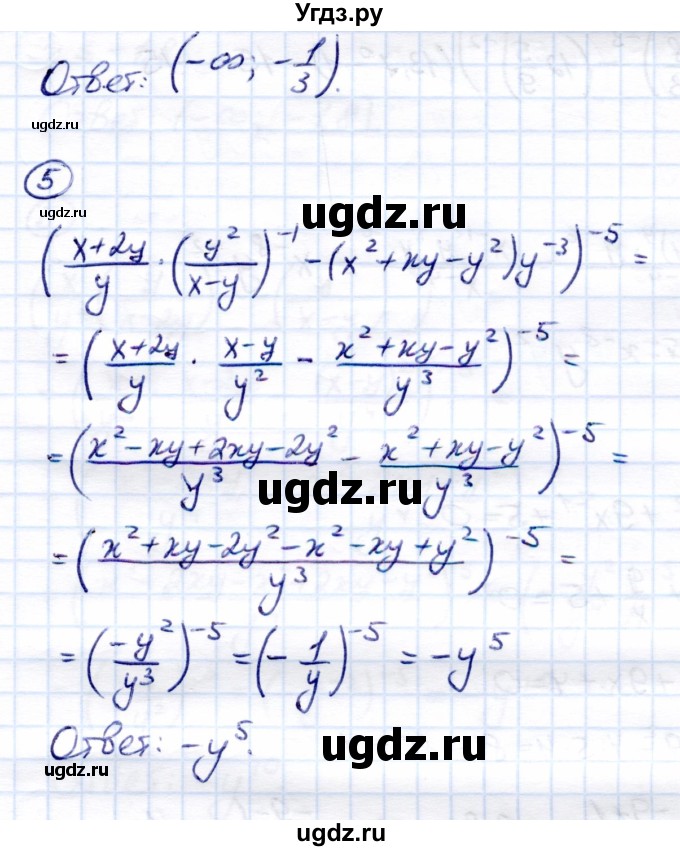 Угдз.ру
Ответ: (-∞; -1/3).
ugdz.ru
5
ugdz.ru
ugdz.ru
((x+2y)/y · (y²/(x-y))⁻¹ - (x²+xy-y²)y⁻³)⁻⁵ =
= ((x+2y)/y · (x-y)/y² - (x²+xy-y²)/y³)⁻⁵ =
= ((x²-xy+2xy-2y²)/y³ - (x²+xy-y²)/y³)⁻⁵ =
ugdz.ru
= ((x²+xy-2y²-x²-xy+y²)/y³)⁻⁵ =
= (-y²/y³)⁻⁵ = (-1/y)⁻⁵ = -y⁵
Ответ: -y⁵.
ugdz.ru
ugdz.ru
ugdz.ru